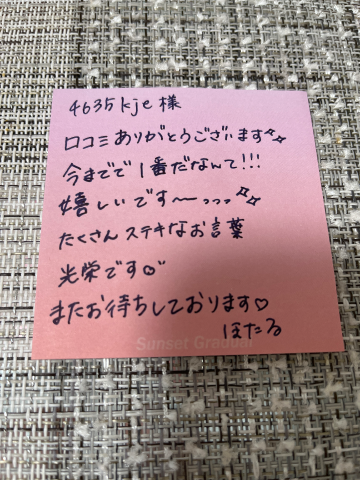 4635kje 様
口コミありがとうございます✨
今までで1番だなんて!!!
嬉しいです〜っっっ✨
たくさんステキなお言葉
光栄です
またお待ちしております♡
ほたる
Sunset Gradual